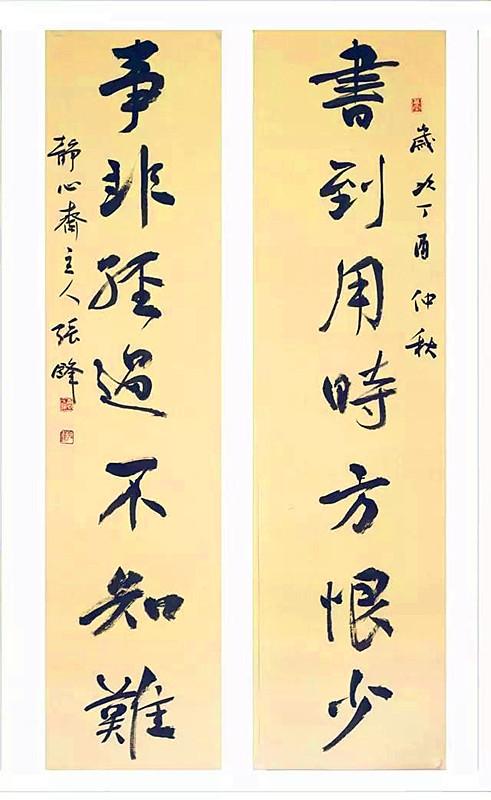 書到用時方恨少
歲次丁酉仲秋
事非經過不知難
靜心齋主人張峰